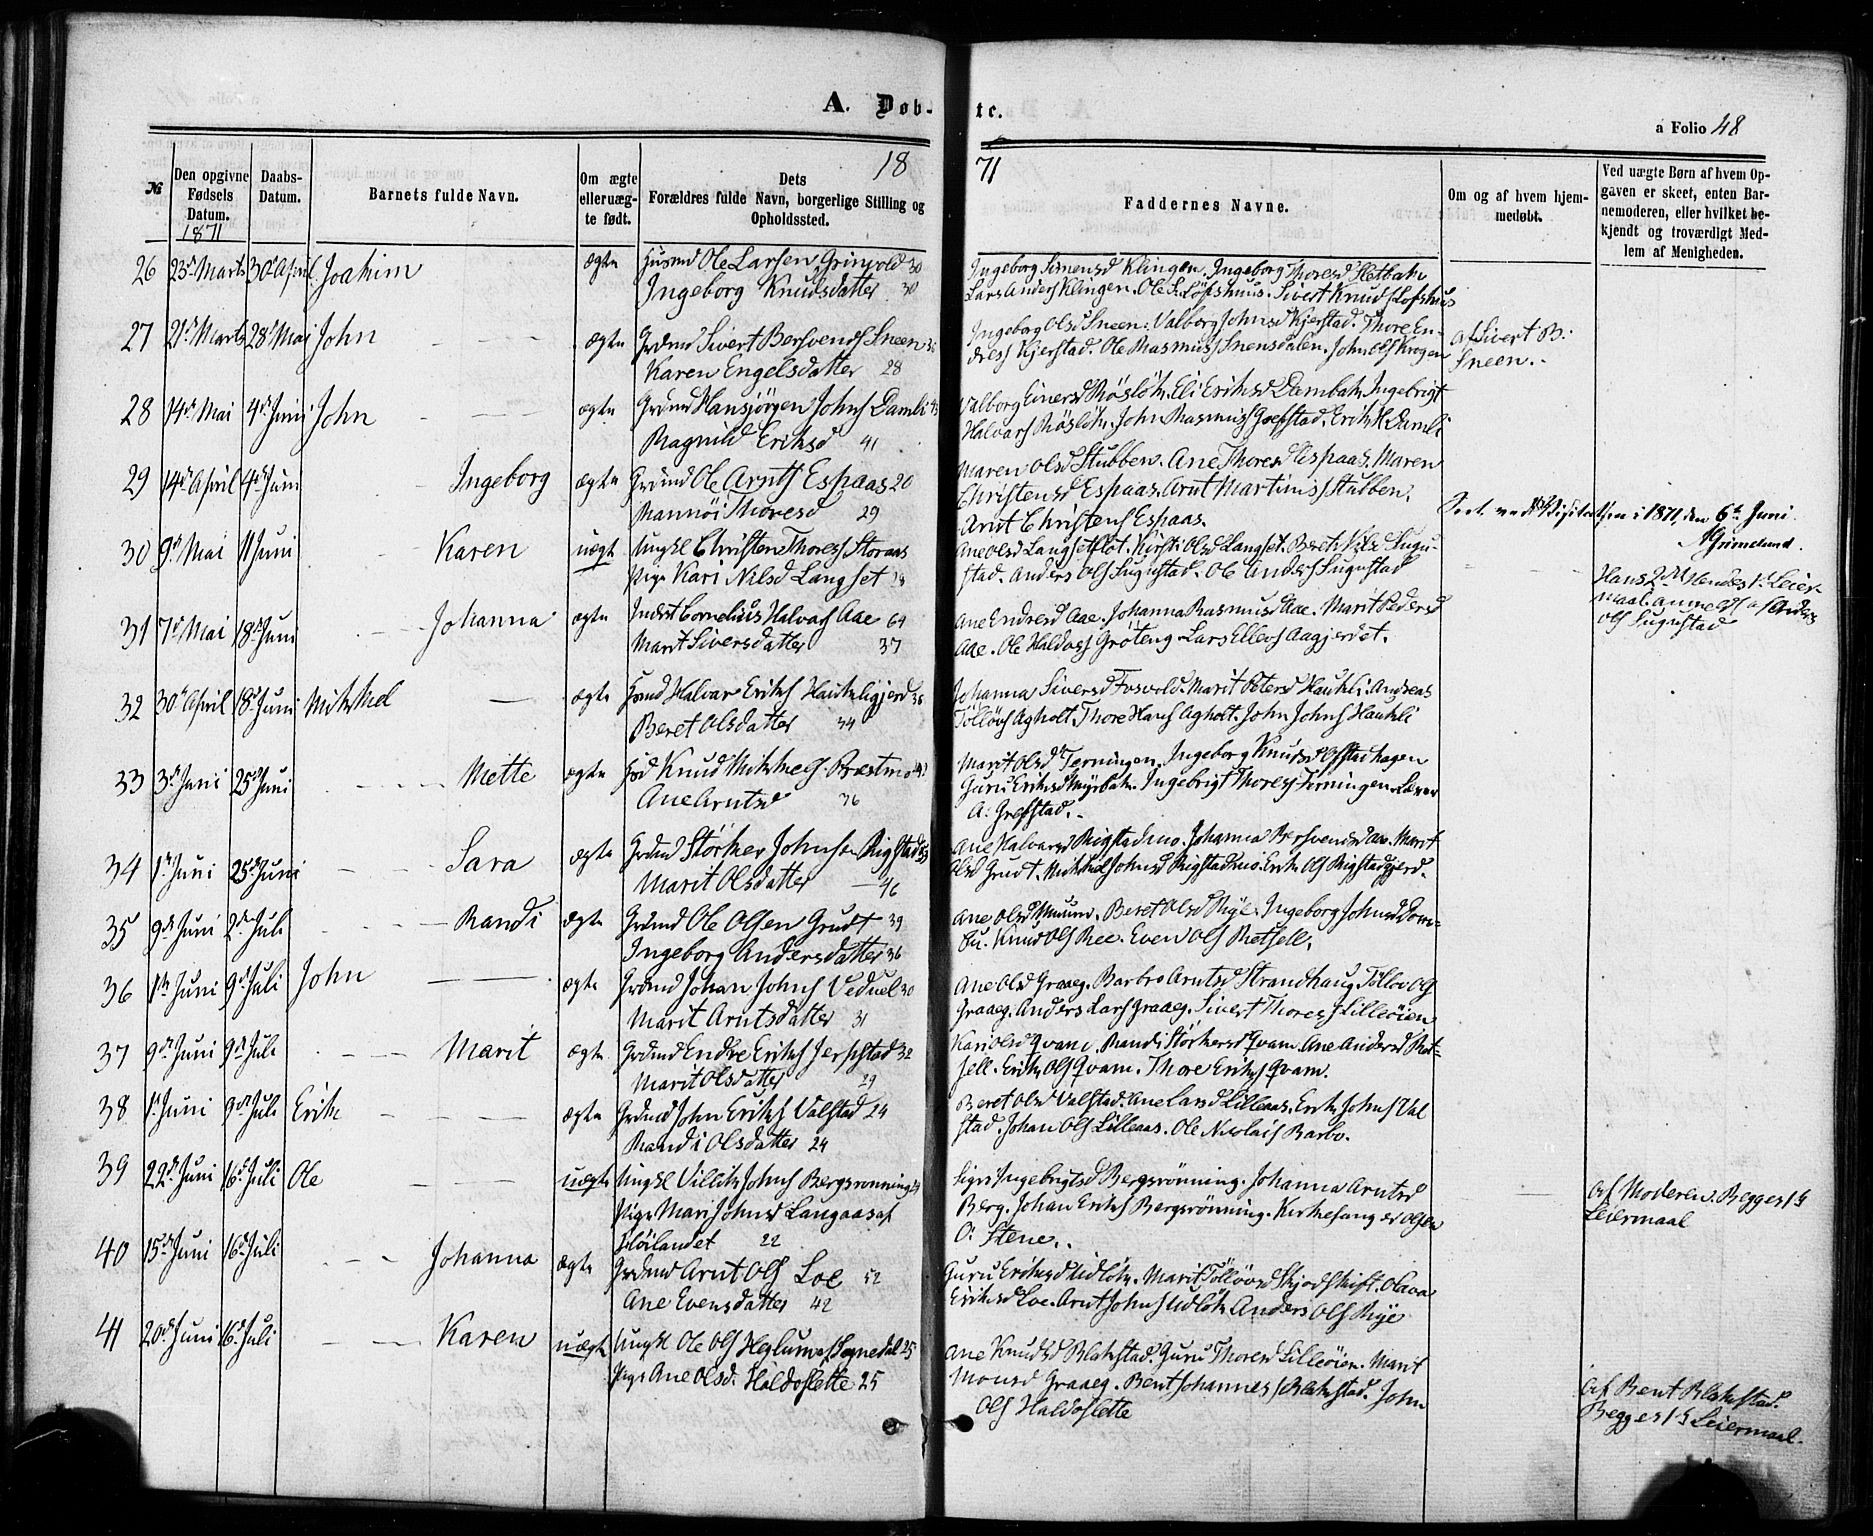 A. Døb-
te.
a Folio 48
18
71
№
Den opgivne Fødsels Datum.
1871
Daabs-Datum.
Barnets fulde Navn.
Om ægte eller uægte født.
Dets Forældres fulde Navn, borgerlige Stilling og Opholdssted.
Faddernes Navne.
Om og af hvem hjemmedøbt.
Ved uægte Børn af hvem Opgaven er skeet, enten Barnemoderen, eller hvilket bekjendt og troværdigt Medlem af Menigheden.
26 23de Marts 30de April Joakim ægte Husmd Ole Larsen Grinvold 30
Ingeborg Knudsdatter 30
Ingeborg Simensd Klingen. Ingeborg Thoresd Sletbak
Lars Anders Klingen. Ole S. Lofshuus. Sivert Knuds Lofshuus
27 21de Marts 28de Mai John ægte Grdmd Sivert Bersvends Sneen
Karen Engelsdatter 28
Ingeborg Olsd Sneen. Valborg Johnsd Kjerstad. Thore En-
dres Kjerstad. Ole Rasmus Snensdalen. John Ols Krogen
af Sivert B:
Sneen.
28 14de Mai 4de Juni John ægte Grdmd Hansjörgen Johns Damli
Ragnild Eriksd 41
Valborg Einersd Röslök. Eli Eriksd Dambak. Ingebrigt
Halvars Röslök. John Rasmus Grefstad. Erik H. Damli
29 14de April 4de Juni Ingeborg ægte Grdmd Ole Arnts Espaas 20
Mannöi Thoresd 29
Maren Olsd Stubben. Ane Thoresd Espaas. Maren
Christensd Espaas. Arnt Martinus Stubben.
Arnt Christens Espaas.
Seet ved Visitatsen i 1871, den 6te Juni
Grimelund.
30 9de Mai 11 Juni Karen uægt Ungkl Christen Thores Storaas
Pige Kari Nilsd Langset
Ane Olsd Langsetflot. Kirsti Olsd Langset. Beret Nilsd Sugu-
stad. Anders Ols Sugustad. Ole Anders Sugustad
Hans 2det Hendes 1ste Leier-
maal. anmeldt af Anders
Ols Sugustad
31 7de Mai 18de Juni Johanna ægte Inderst Cornelius Halvars Aae 64
Marit Siversdatter 37
Ane Endresd Aae. Johanna Rasmusd Aae. Marit Pedersd
Aae. Ole Haldos Gröteng. Lars Ellevs Aagjerdet.
32 30te April 18de Juni Mikkel ægte Halvar Eriks Haukligjerd 36
Beret Olsdatter 34
Johanna Siversd Fosvold. Marit Petersd Haukli. Andreas
Tollövs Agholt. Thore Hans Agholt. John Johns Haukli
33 3de Juni 25de Juni Mette ægte Knud Mikkels Præstmo
Ane Arntsd 36
Marit Olsd Terningen. Ingeborg Knudsd Ofstadhagen
Guru Eriksd Myrbak. Ingebrigt Thores Terningen.
A. Grefstad.
34 1ste Juni 25de Juni Sara ægte Grdmd Störker Johnsen Rigstad
Marit Olsdatter 46
Ane Halvarsd Rigstadmo. Johanna Bersvendsd Aae. Marit
Olsd Grudt. Mikkel Johns Rigstadmo. Erik Ols Rigstadgjerd.
35 9de Juni 2den Juli Randi ægte Grdmd Ole Olsen Grudt 39
Ingeborg Andersdatter 36
Ane Olsd Muum. Beret Olsd Rye. Ingeborg Johnsd Dom-
bu. Knud Ols Ree. Even Ols Retsell.
36 1ste Juni 9de Juli John ægte Grdmd Johan Johns Veduel 30
Marit Arntsdatter 31
Ane Olsd Graaeg. Barbro Arntsd Strandhaug. Töllöv Ols
Graaeg. Anders Lars Graaeg. Sivert Thores Lilleöien
37 9de Juni 9de Juli Marit ægte Grdmd Endre Eriks Jerpstad 32
Marit Olsdatter 29
Kari Olsd Qvam. Randi Störkersd Qvam. Ane Andersd Ret-
sell. Erik Ols Qvam. Thore Eriks Qvam.
38 1ste Juni 9de Juli Erik ægte Grdmd John Eriks Valstad 24
Randi Olsdatter 24
Beret Olsd Valstad. Ane Larsd Lilleaas. Erik Johns Val
stad. Johan Ols Lilleaas. Ole Nicolais Barbo.
39 22de Juni 16de Juli Ole uægte Ungkl Villik Johns Bergsrönning
Pige Mari Johnsd Langaas af
Höilandet 22
Sigri Ingebrigtsd Bergsrönning. Johanna Arntsd
Berg. Johan Eriks Bergsrönning. Kirkesanger Olsen
O. Stene.
Af Moderen. Begges 1ste
Leiermaal
40 15de Juni 16de Juli Johanna ægte Grdmd Arnt Ols Loe 52
Ane Evensdatter 42
Guru Eriksd Udlök. Marit Töllövsd Skjodskift. Olava
Eriksd Loe. Arnt Johns Udlök. Anders Ols Rye
41 20de Juni 16de Juli Karen uægte Ungkl Ole Ols Heglum af Sognedal 25
Pige Ane Olsd. Haldoslette 25
Ane Knudsd Blakstad. Guru Thoresd Lilleöien. Marit
Monsd Graaeg. Bent Johannes Blakstad. John
Ols Haldoslette
Af Bent Blakstad.
Begges 1ste Leiermaal.